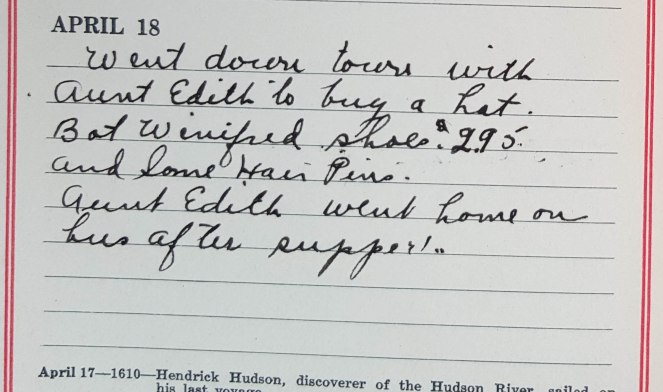 APRIL 18
Went down town with
Aunt Edith to buy a hat.
Bot Winifred shoes. $2.95.
and some Hair Pins.
Aunt Edith went home on
bus after supper!..
April 17—1610—Hendrick Hudson, discoverer of the Hudson River, sailed on
his last voyage